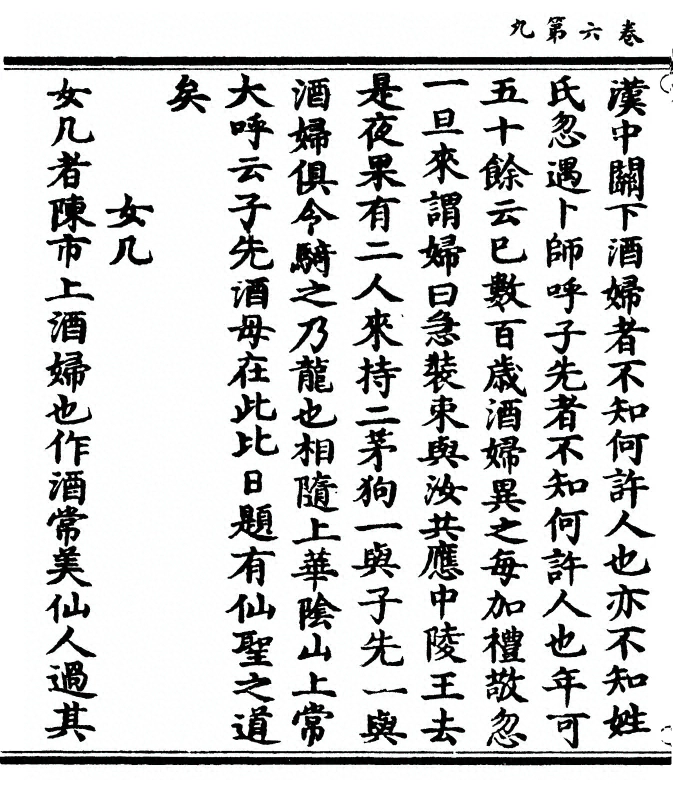 卷六第九
漢中關下酒婦者不知何許人也亦不知姓
氏忽遇卜師呼子先者不知何許人也年可
五十餘云已數百歳酒婦異之每加禮敬忽
一旦來謂婦曰急裝束與汝共應中陵王去
是夜果有二人來持二茅狗一與子先一與
酒婦俱令騎之乃龍也相隨上華陰山上常
大呼云子先酒母在此比日題有仙聖之道
矣
女几
女几者陳市上酒婦也作酒常美仙人過其